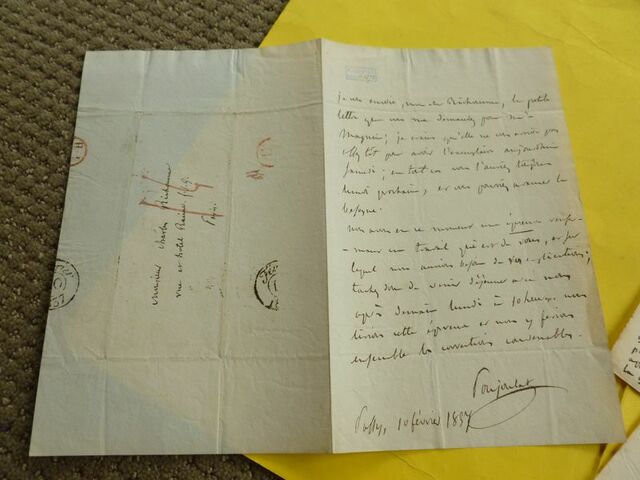 Monsieur Charles
rue et hôtel
Paris
je vous envoie, mon cher, la petite
lettre que vous me demandez pour Mr
Magnin; je crains qu'elle ne vous arrive pas
assez tôt pour avoir l'exemplaire aujourd'hui
samedi; en tout cas vous l'auriez toujours
lundi prochain, et vous pourriez avancer la
besogne.
nous avons en ce moment une épreuve renfer-
-mant un travail qui est de vous, et sur
lequel nous aurions besoin de vos explications;
tâchez donc de venir déjeuner avec nous
après demain lundi à 10 heures. nous
lirions cette épreuve et nous y ferions
ensemble les corrections convenables.
Poujoulat
Passy, 10 février 1837